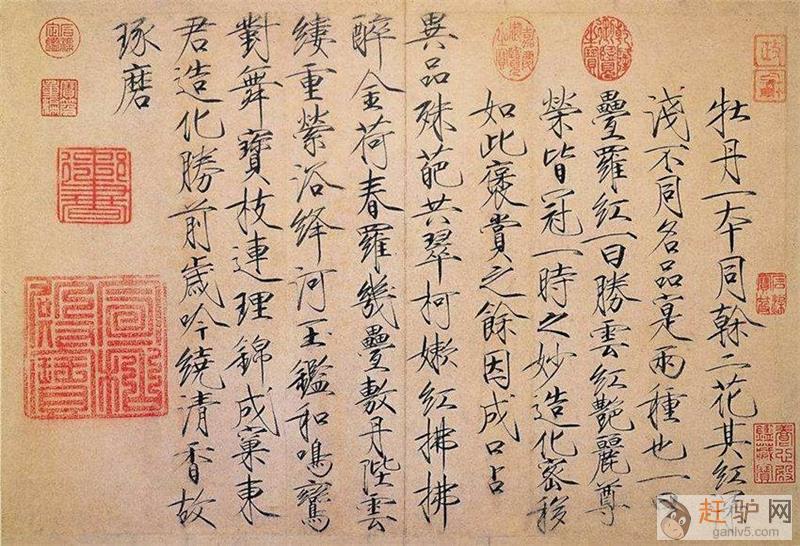 牡丹一本同榦二花其紅
淺不同名品寔兩種也一
疊羅紅一曰勝雲紅艷麗尊
榮皆冠一時之妙造化密移
如此褒賞之餘因成口占
異品殊葩共翠柯嫩紅拂拂
醉金荷春羅幾疊敷丹陛雲
縷重縈浴絳河玉鑑和鳴鸞
對舞寶枝連理錦成窠東
君造化勝前歲吟繞清香故
琢磨
赶驴网
ganlv5.com